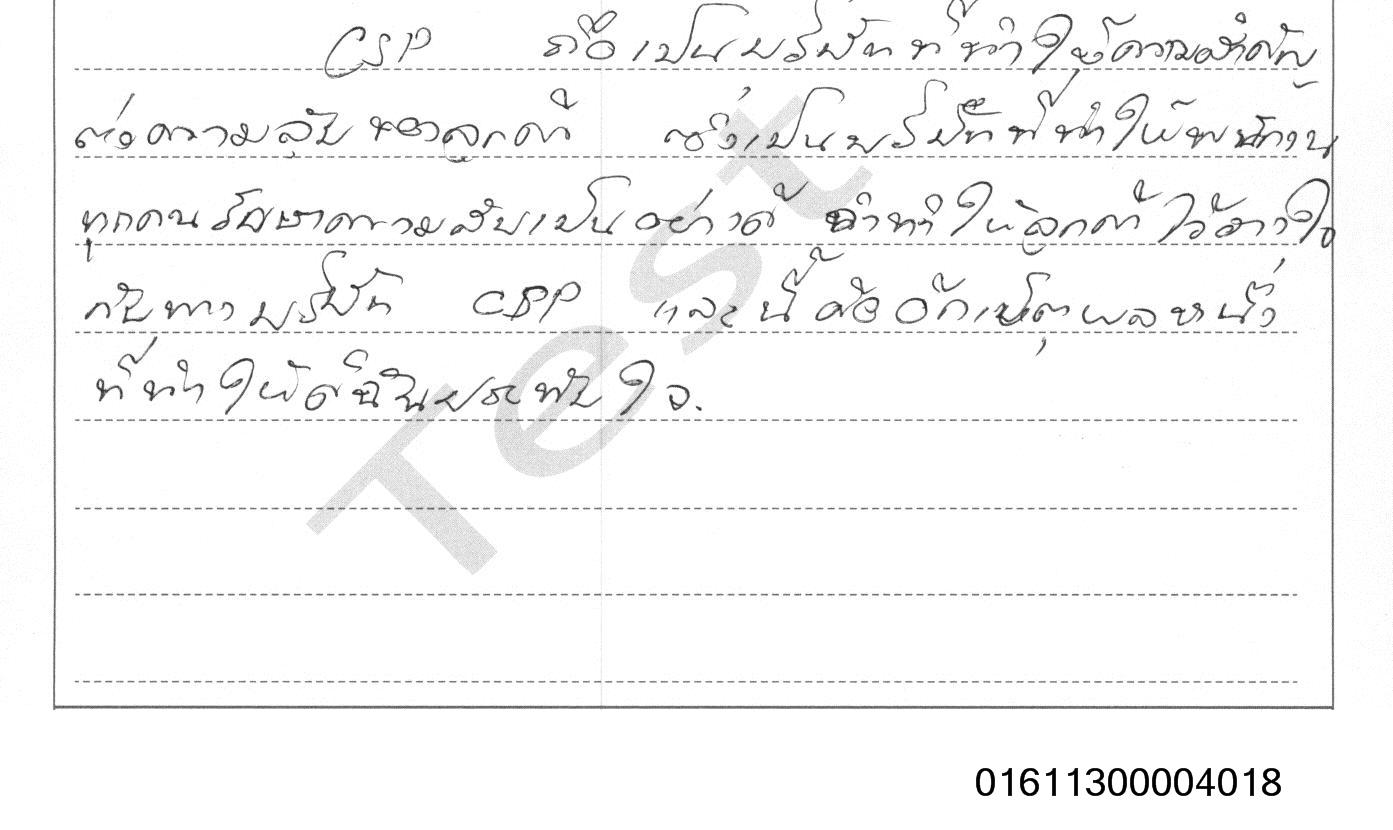 CSP ถือเป็นบริษัทที่ทำให้ความสำคัญ
ต่อความลับของลูกค้า ซึ่งเป็นบริษัทที่ทำให้พนักงาน
ทุกคนรักษาความลับเป็นอย่างดี จึงทำให้ลูกค้าไว้วางใจ
กับทางบริษัท CSP และนี้คืออีกเหตุผลหนึ่ง
ที่ทำให้ดิฉันประทับใจ.
Test
01611300004018